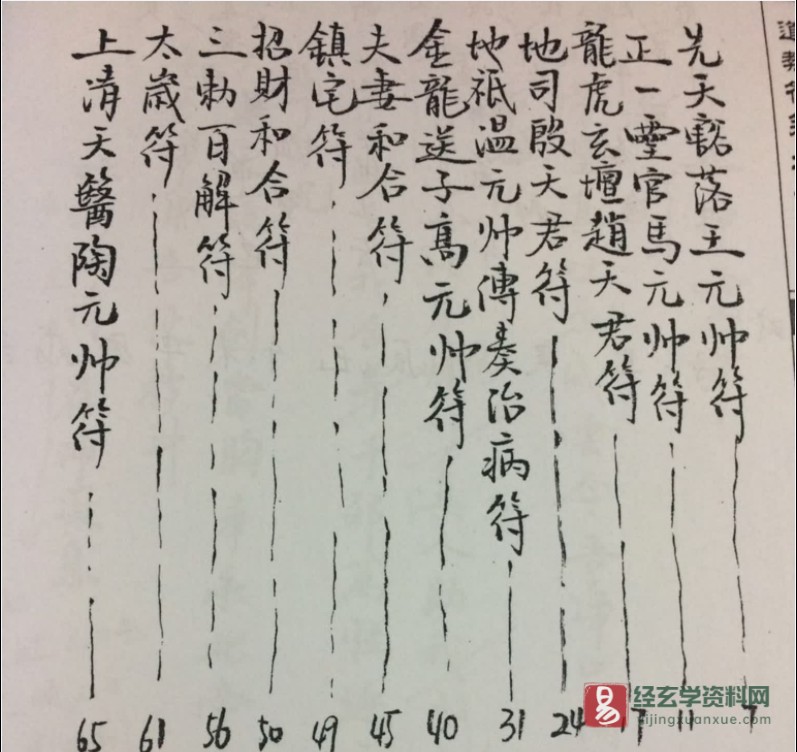 先天豁落王元帅符 7
正一靈官馬元帅符 11
龍虎玄壇趙天君符
地司殷天君符 24
地祇温元帅傳奏治病符 31
金龍送子高元帅符 40
夫妻和合符 45
鎮宅符 49
招財和合符 50
三勅百解符 56
太歲符 61
上清天醫陶元帅符 65
易
经玄学资料网